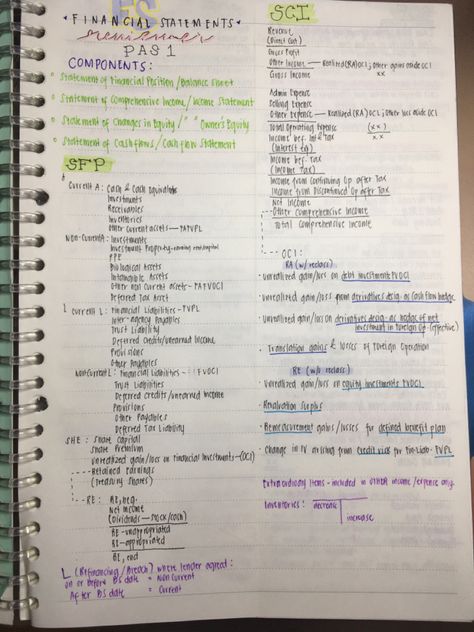 FS
* FINANCIAL STATEMENTS *
reviewer
PAS 1
COMPONENTS:
Statement of Financial Position / Balance Sheet
Statement of Comprehensive Income / Income Statement
Statement of Changes in Equity / " " Owner's Equity
Statement of Cashflows / Cashflow Statement
SFP
A
Current A: Cash & Cash Equivalents
Investments
Receivables
Inventories
Other current assets - FATVPL
Non-Current A: Investments
Investment Property
PPE
Biological Assets
Intangible Assets
Other Non current Assets - FATVOCI
Deferred Tax Asset
L Current L: Financial Liabilities - FVPL
Inter-agency Payables
Trust Liability
Deferred Credits/unearned Income
Provisions
Other Payables
Noncurrent L: Financial Liabilities - FVOCI
Trust Liabilities
Deferred credits/unearned income
Provisions
Other Payables
Deferred Tax Liability
SHE: Share Capital
Share Premium
Unrealized gain/loss on Financial Investments - (OCI)
Retained Earnings
(Treasury Shares)
RE: RE, beg.
Net Income
(Dividends - stock/cash)
RE - unappropriated
RE - appropriated
RE, end
L (Refinancing / Breach) where lender agreed:
on or before BS date = Non Current
After BS date = Current
SCI
Revenue
(Direct Cost)
Gross Profit
Other Income - Realized (RA) OCI; other gains aside OCI
Gross Income xx
Admin Expense
Selling Expense
Other Expense - Realized (RA) OCI; other loss aside OCI
Total Operating Expense (xx)
Income bef. Int & Tax xx
(Interest Eq)
Income bef. Tax
(Income Tax)
Income from Continuing Op after Tax
Income from Discontinued Op after Tax
Net Income
Other Comprehensive Income
Total Comprehensive Income
OCI:
RA (w/ reclass)
· Unrealized gain/loss on debt investments FVOCI
· Unrealized gain/loss from derivatives desig. as cash flow hedge
· Unrealized gain/loss on derivatives desig. as hedges of net
investment in Foreign Op (effective)
· Translation gains & losses of Foreign Operation
RE (w/o reclass)
· Unrealized gain/loss on equity investments FVOCI
· Revaluation Surplus
· Remeasurement gains/losses for defined benefit plan
· Change in FV arising from credit risk for fin. liab. - FVPL
Extraordinary Items - included in OTHER income/expense only
Inventories: decrease
increase